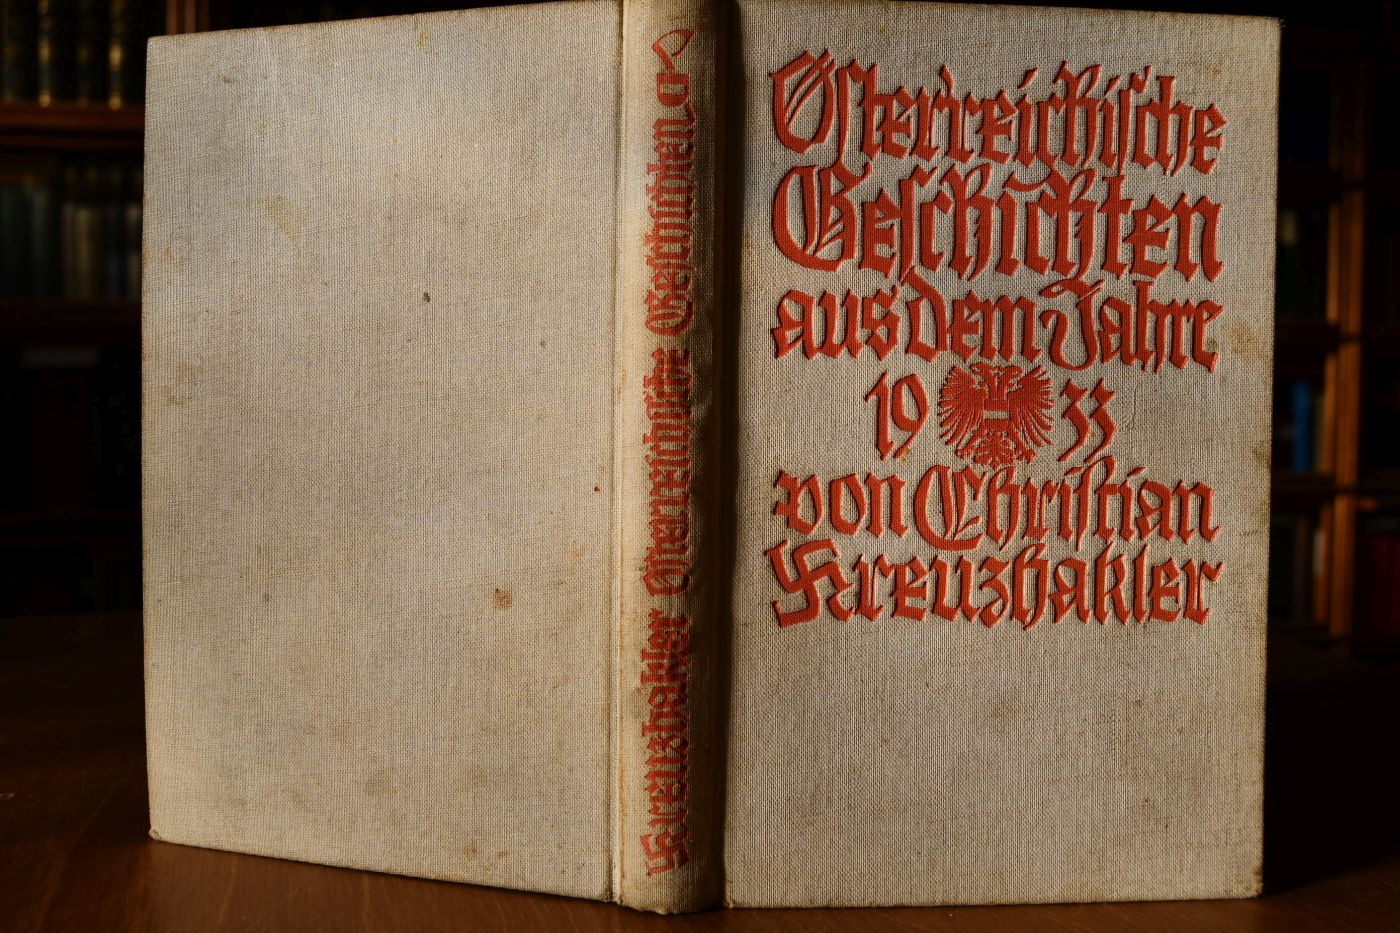 Kreuzhakler Österreichische Geschichten
Österreichische
Geschichten
aus dem Jahre
1933
von Christian
Kreuzhakler